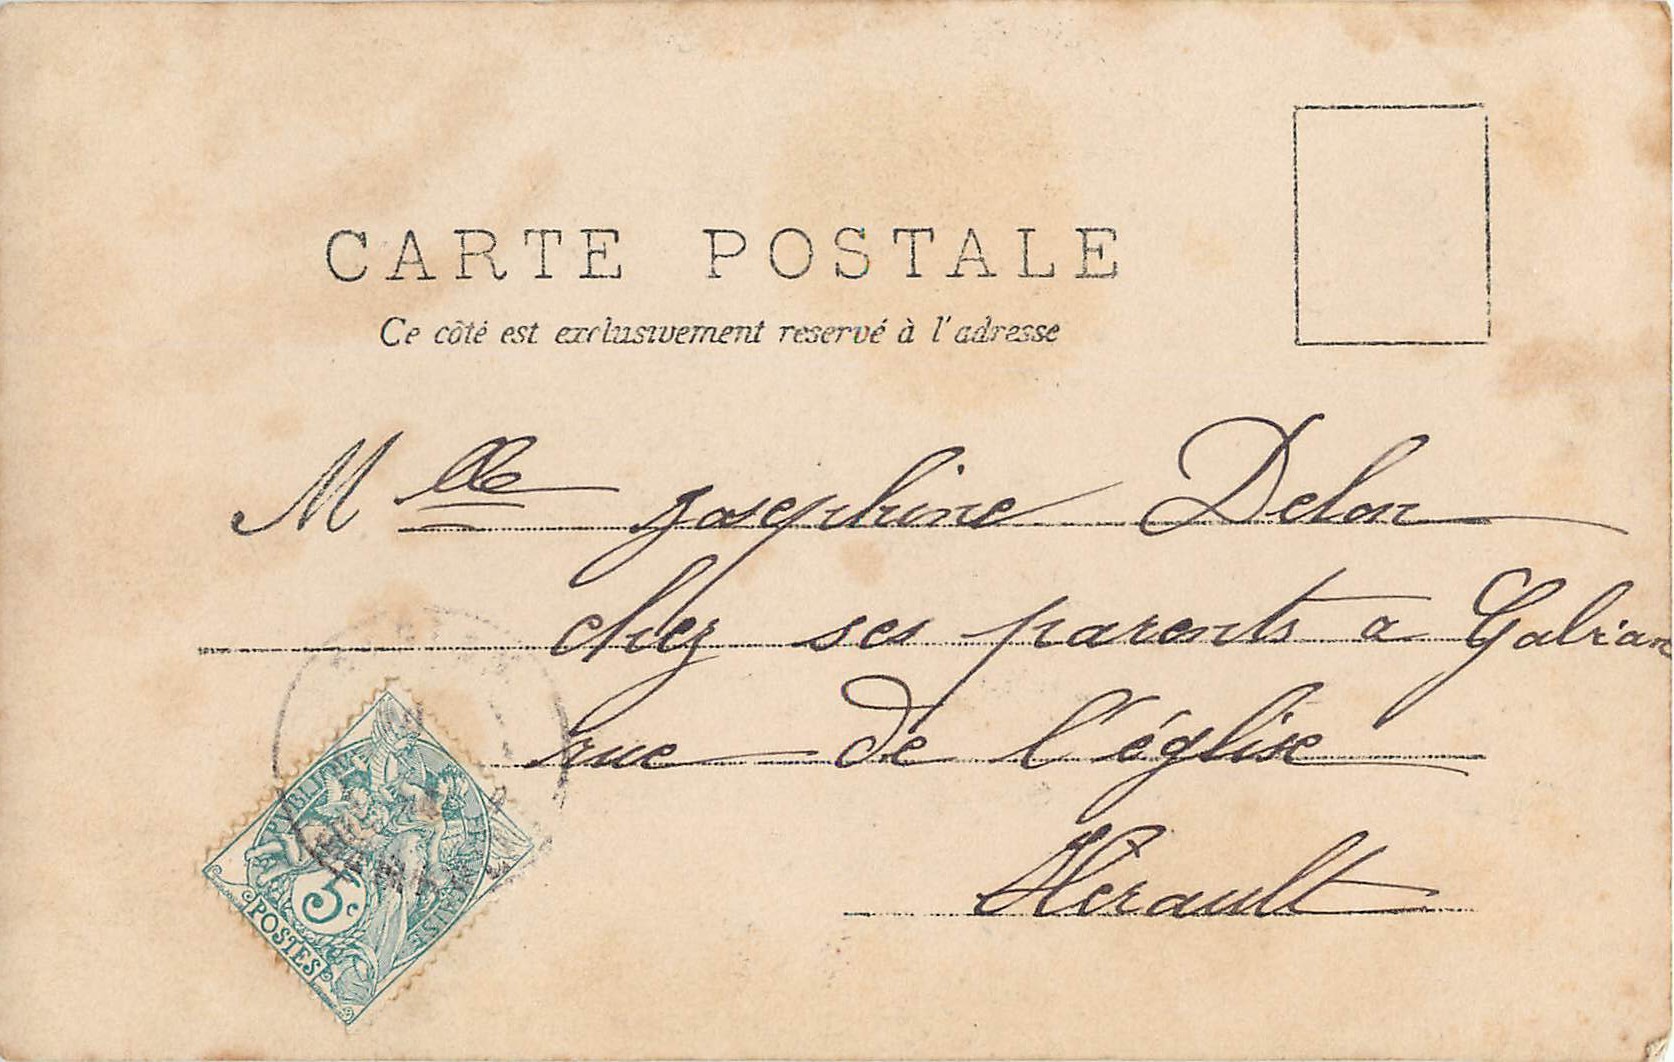 CARTE POSTALE
Ce côté est exclusivement reservé à l'adresse
Mlle Josephine Delon
chez ses parents a Gabian
rue de l'église
Hérault
RÉPUBLIQUE FRANÇAISE
5 c
POSTES